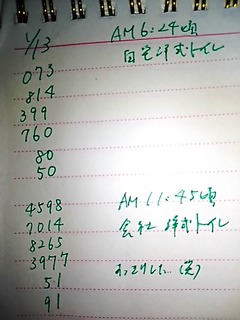 1/13 AM 6:24頃
自宅洋式トイレ
073
814
399
760
80
50
4598 AM 11:45頃
7014 会社 洋式トイレ
8265
3977
51
91